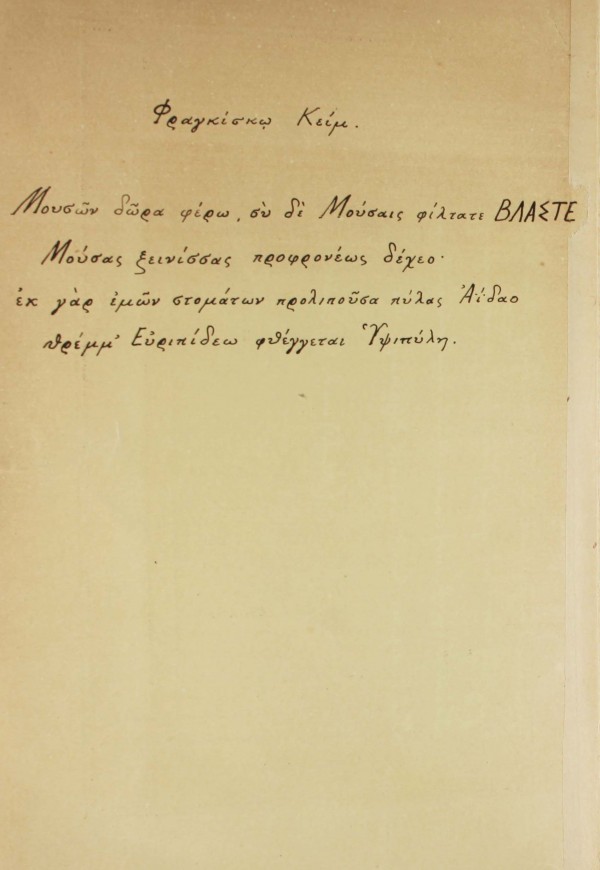 Φραγκίσκῳ Κείμ.
Μουσῶν δῶρα φέρω, σὺ δὲ Μούσαις φίλτατε ΒΛΑΣΤΕ
Μούσας ξεινίσσας προφρονέως δέχεο·
ἐκ γὰρ ἐμῶν στομάτων προλιποῦσα πύλας Ἀΐδαο
θρέμμ' Εὐριπίδεω φθέγγεται Ὑψιπύλη.